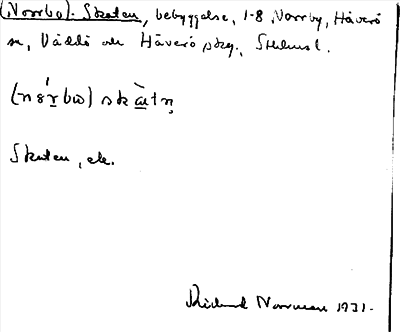 (Norrbo)-Skaten, bebyggelse, 1-8 Norrby, Häverö
sn, Väddö och Häverö skg., Sthlms l.
(nɜ́r̲bω) skɑ̀tn̥
Skaten, ek.
Rickard Norrman 1931.